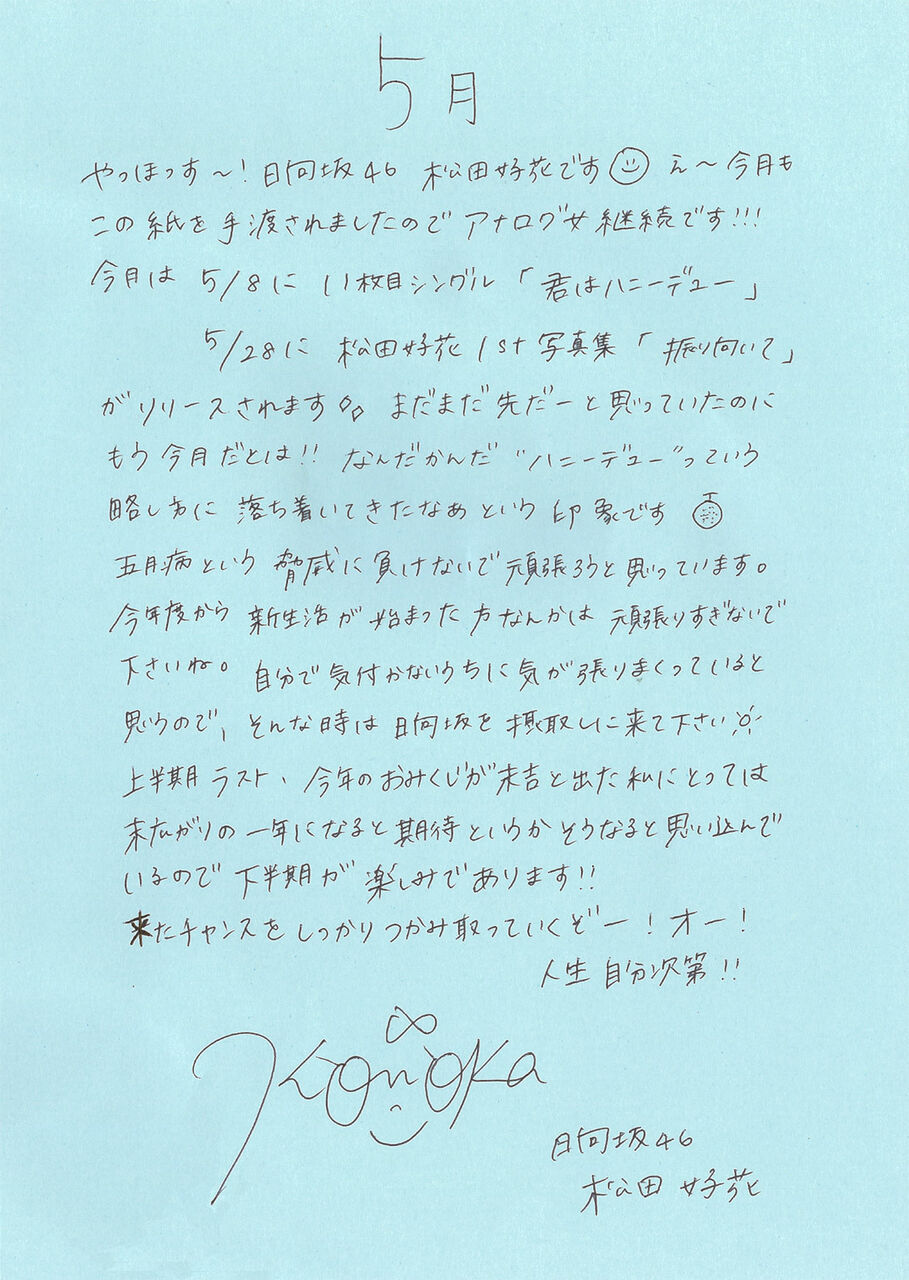 5月
やっほっす〜！日向坂46 松田好花です え〜今月も
この紙を手渡されましたのでアナログ女継続です!!!
今月は 5/8に 11枚目シングル「君はハニーデュー」
5/28に 松田好花 1st写真集「振り向いて」
がリリースされます まだまだ先だーと思っていたのに
もう今月だとは!! なんだかんだ“ハニーデュー”っていう
略し方に落ち着いてきたなぁという印象です
五月病という脅威に負けないで頑張ろうと思っています。
今年度から新生活が始まった方なんかは頑張りすぎないで
下さいね。自分で気付かないうちに気が張りまくっていると
思うので、そんな時は日向坂を摂取しに来て下さい
上半期ラスト、今年のおみくじが末吉と出た私にとっては
末広がりの一年になると期待というかそうなると思い込んで
いるので下半期が楽しみであります!!
来たチャンスをしっかりつかみ取っていくぞー！オー！
人生自分次第!!
Konoka
日向坂46
松田 好花